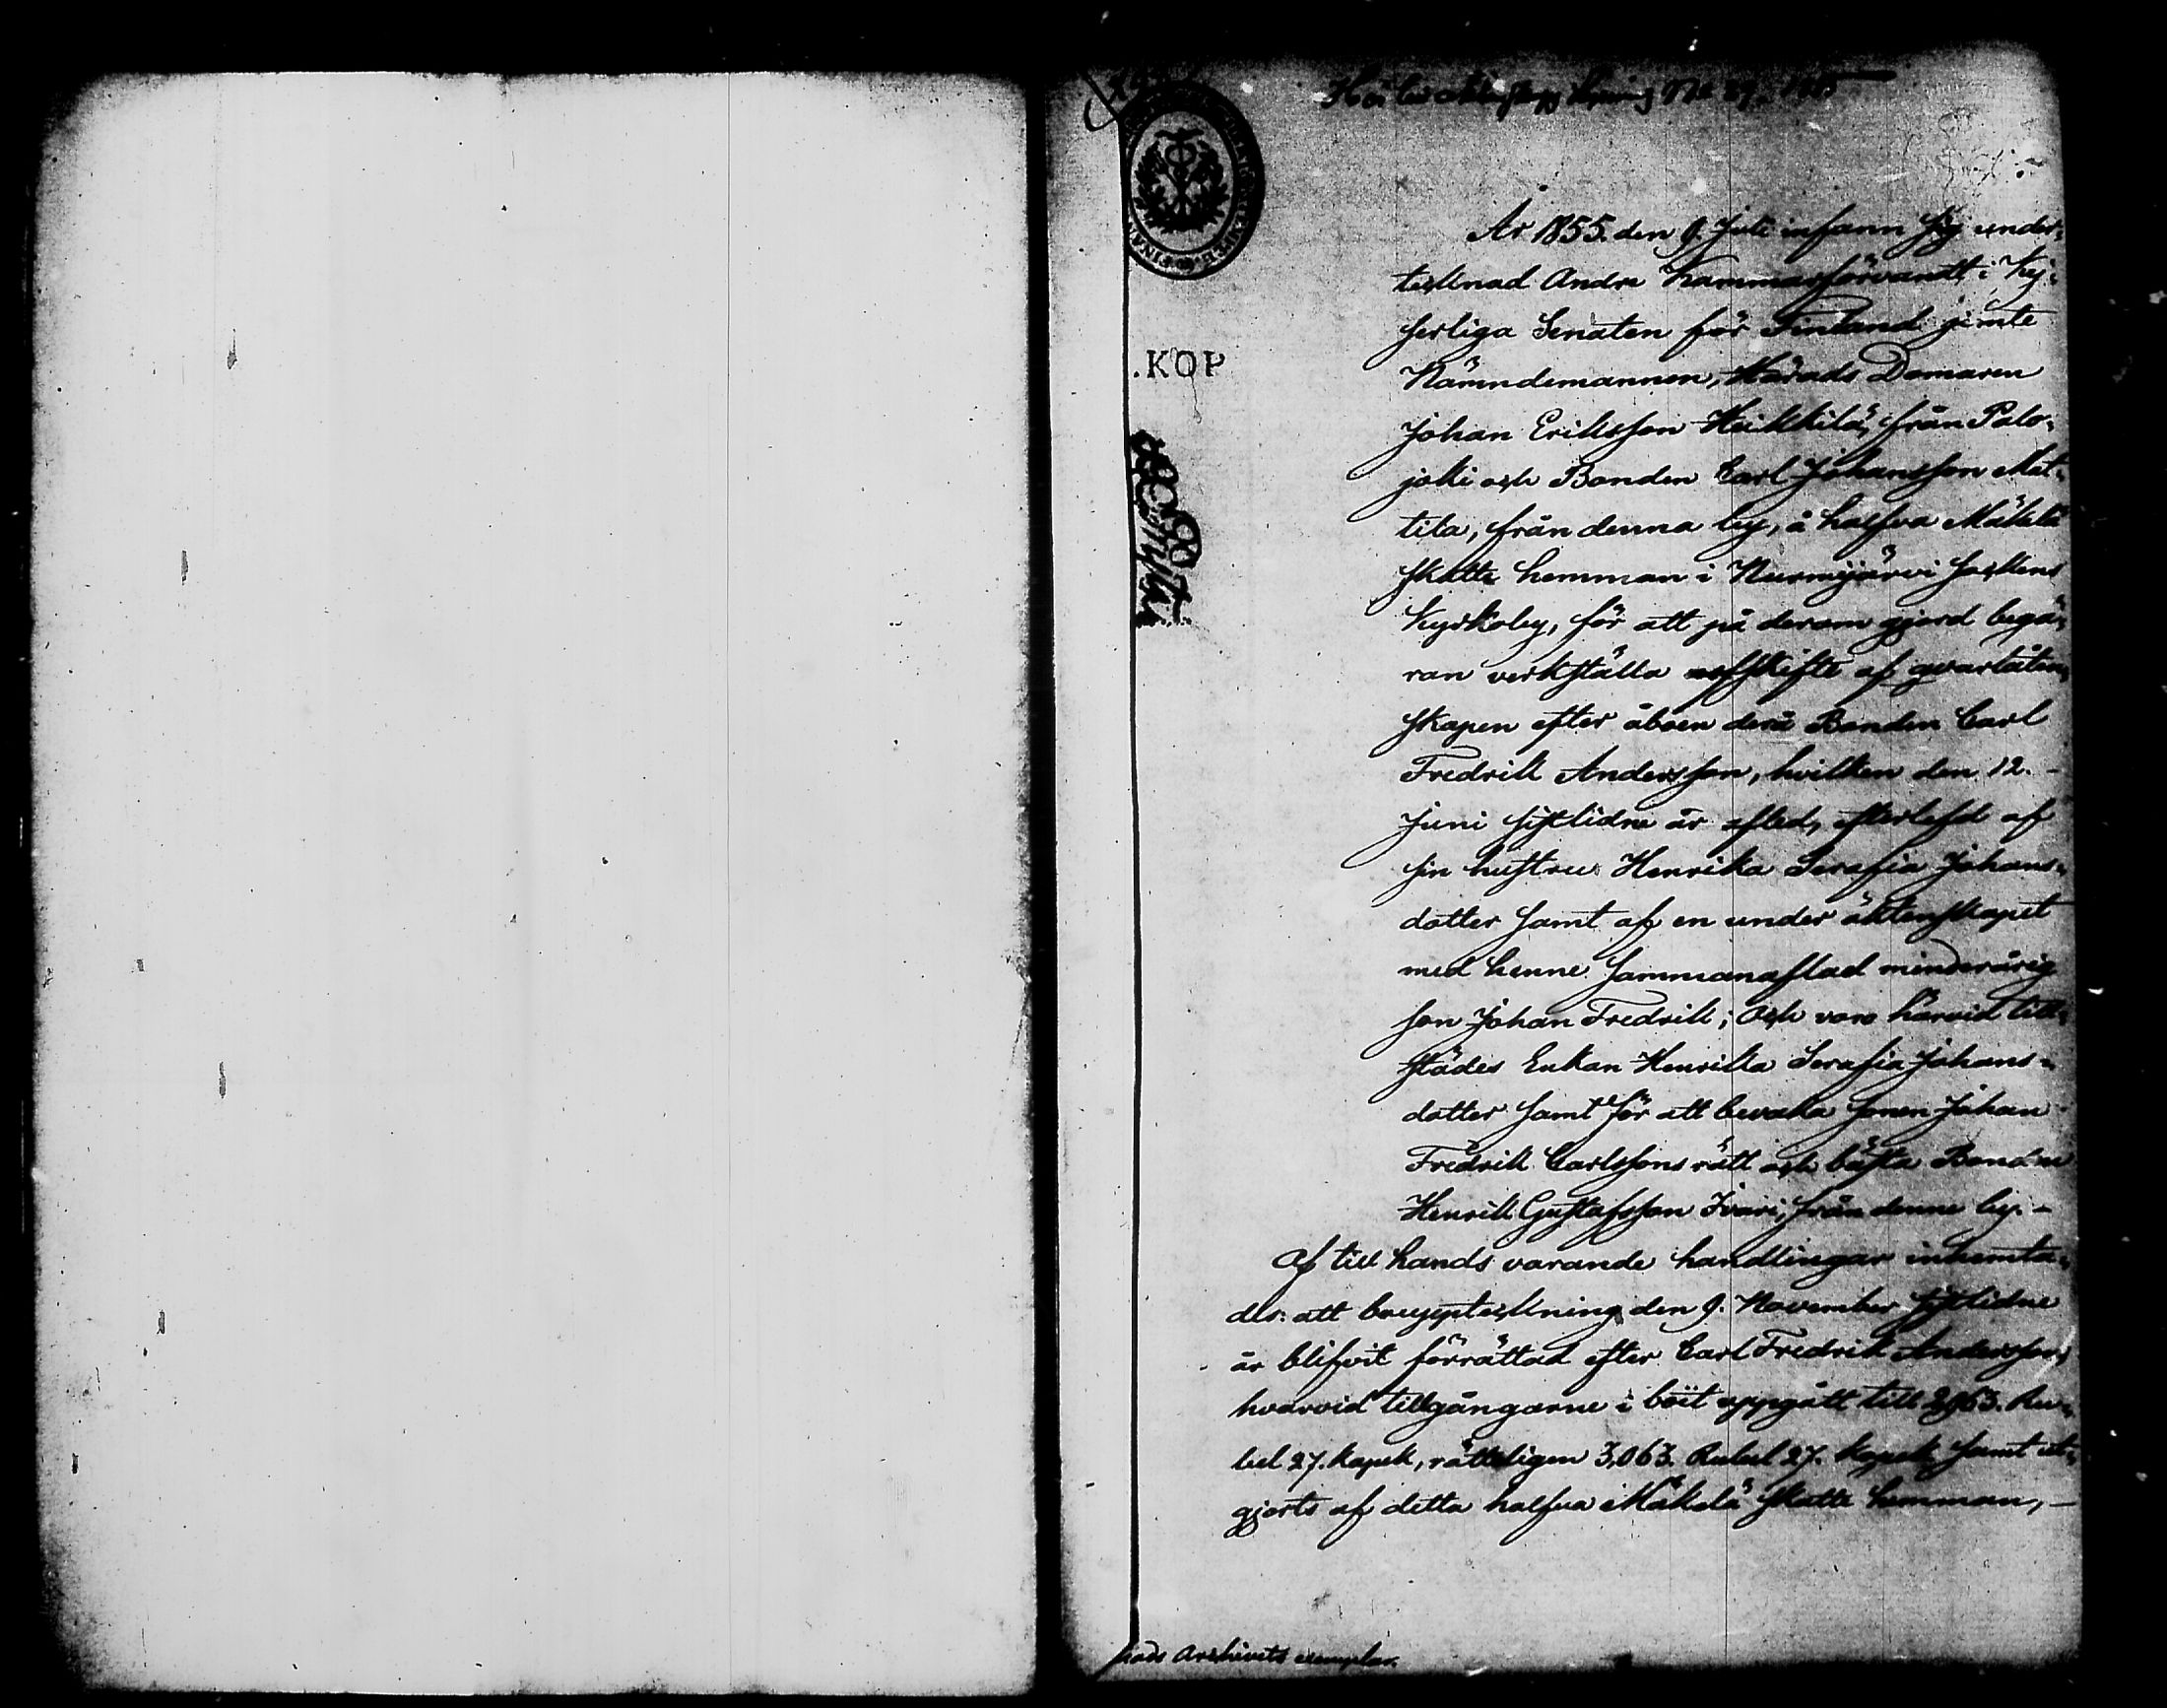 År 1855. den 9. Juli infann sig under-
tecknad Andre Kammarförvandt i Kej-
serliga Senaten för Finland jemte
Nämndemannen, Härads Domaren
Johan Eriksson Heikkilä, från Palo-
joki och Bonden Carl Johansson Mat-
tila, från denna by, å halfva Mäkelä
skatte hemman i Nurmijärvi Sockens
Kyrkoby, för att på derom gjord begä-
ran verkställa arfskifte af qvarlåten-
skapen efter åboen derå Bonden Carl
Fredrik Andersson, hvilken den 12.
Juni sistlidne år afled, efterlefd af
sin hustru Henrika Serafia Johans-
dotter samt af en under äktenskapet
med henne sammanaflad minderårig
son Johan Fredrik; Och voro härvid till-
städes Enkan Henrika Serafia Johans-
dotter samt för att bevaka sonen Johan
Fredrik Carlssons rätt och bästa Bonden
Henrik Gustafsson Ivari, från denne by. -
Af till hands varande handlingar inhemta-
des: att bouppteckning den 9. November sistlidne
år blifvit förrättad efter Carl Fredrik Andersson,
hvarvid tillgångarne i boet uppgått till 2963. Ru-
bel 27. kopek, rätteligen 3,063. Rubel 27. kopek samt ut-
gjorts af detta halfva Mäkelä skatte hemman, -
.KOP
Archivets exemplar.